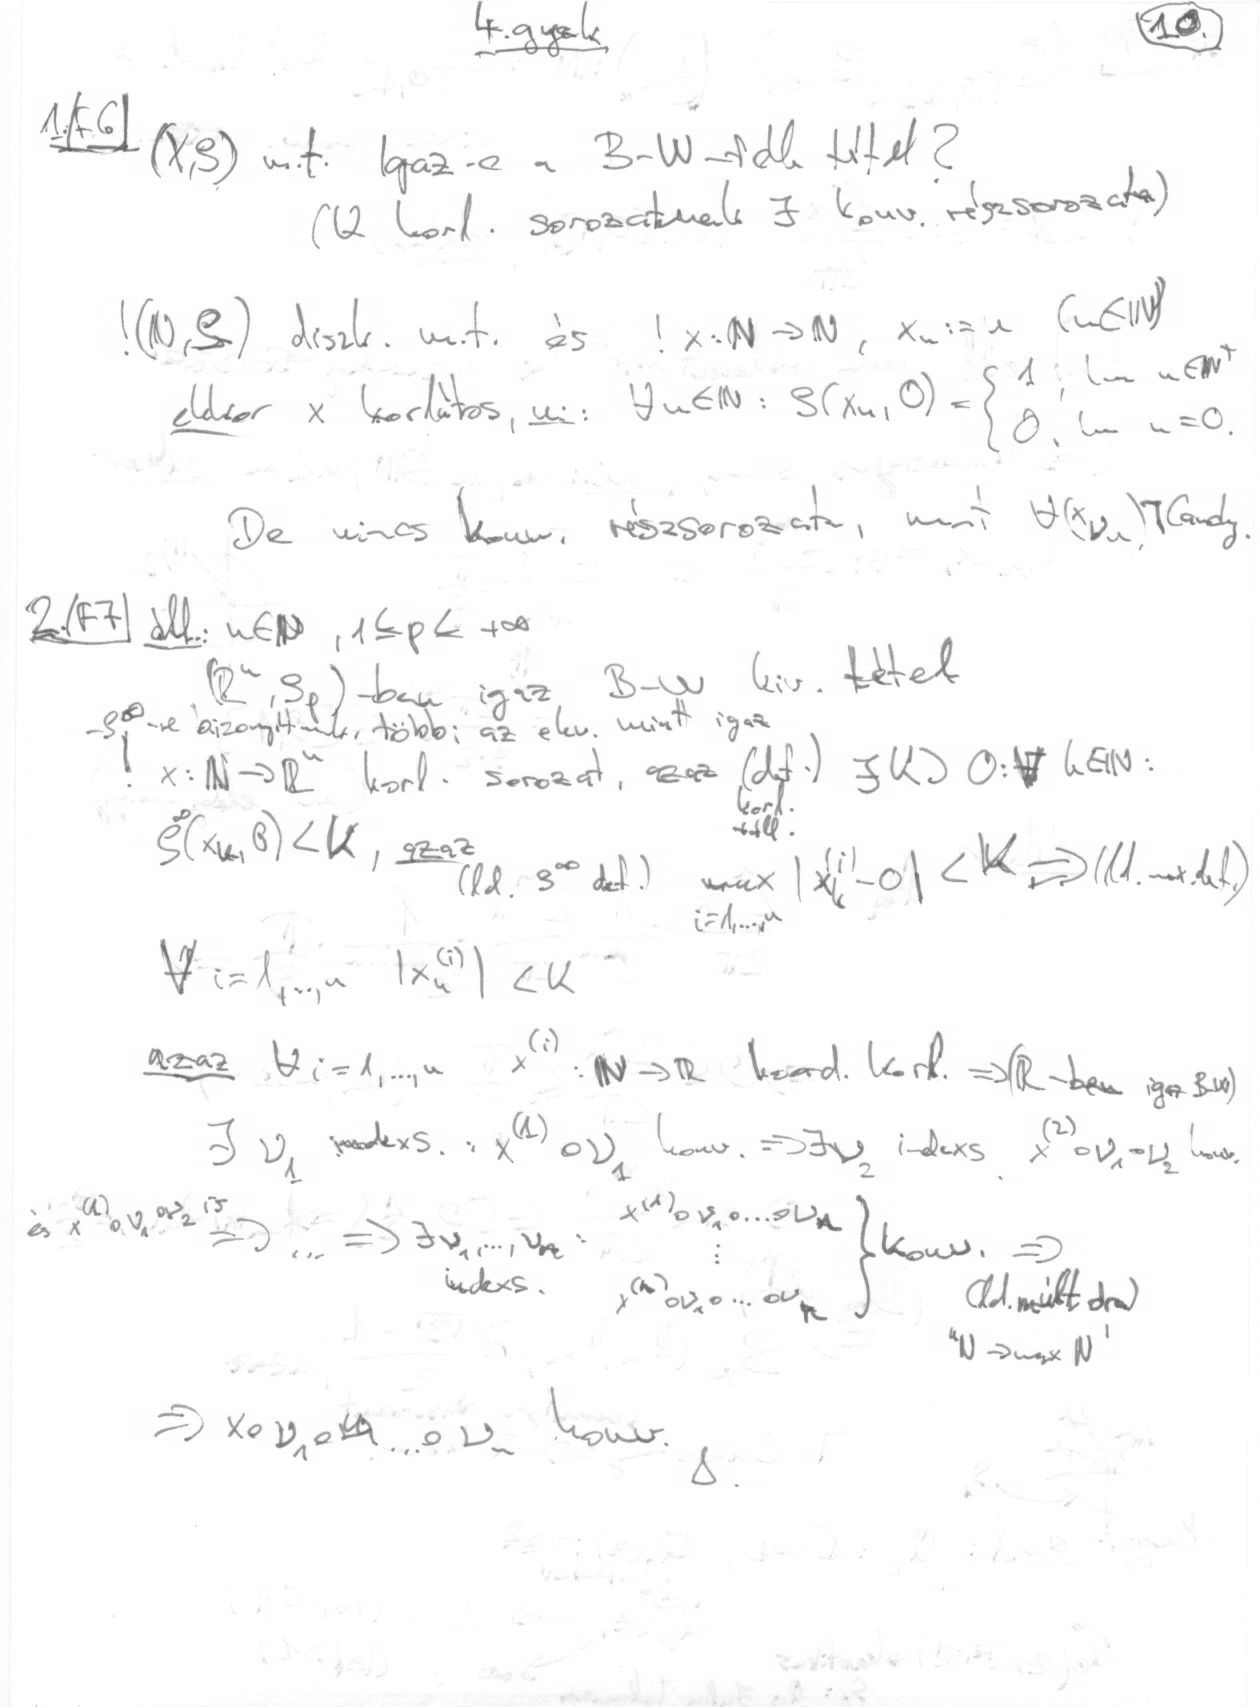 4. gyak
10.
1.(F6) (X,ρ) m.t. Igaz-e a B-W-féle tétel?
(∀ korl. sorozatnak ∃ konv. részsorozata)
!(ℕ,ρ) diszk. m.t. és ! x:ℕ→ℕ, xₙ:=n (n∈ℕ)
ekkor x korlátos, ui: ∀n∈ℕ: ρ(xₙ,0) = { 1, ha n∈ℕ⁺
0, ha n=0.
De nincs konv. részsorozata, mert ∀(x_νₙ) ¬Cauchy.
2.(F7) áll.: n∈ℕ, 1≤p≤+∞
(ℝⁿ,ρ_p)-ben igaz B-W kiv. tétel
ρ^∞-re bizonyítunk, többi az ekv. miatt igaz
! x:ℕ→ℝⁿ korl. sorozat, azaz (def.) ∃K>0: ∀k∈ℕ:
korl.
ρ^∞(x_k,0)<K, azaz
(ld. ρ^∞ def.) max |x_k^(i)-0| < K ⇒ (ld. max.def.)
i=1,...,n
∀ i=1,...,n |x_n^(i)| <K
azaz ∀i=1,...,n x^(i):ℕ→ℝ koord. korl. ⇒(ℝ-ben igaz BW)
∃ ν₁ indexs.: x^(1)∘ν₁ konv. ⇒∃ν₂ indexs x^(2)∘ν₁∘ν₂ konv.
és x^(1)∘ν₁∘ν₂ is ⇒ ... ⇒ ∃ν₁,...,νₙ: x^(1)∘ν₁∘...∘νₙ
indexs. ⋮ } konv. ⇒
x^(n)∘ν₁∘...∘νₙ (ld. múlt óra)
"N→max N"
⇒ x∘ν₁∘...∘νₙ konv.
Δ.